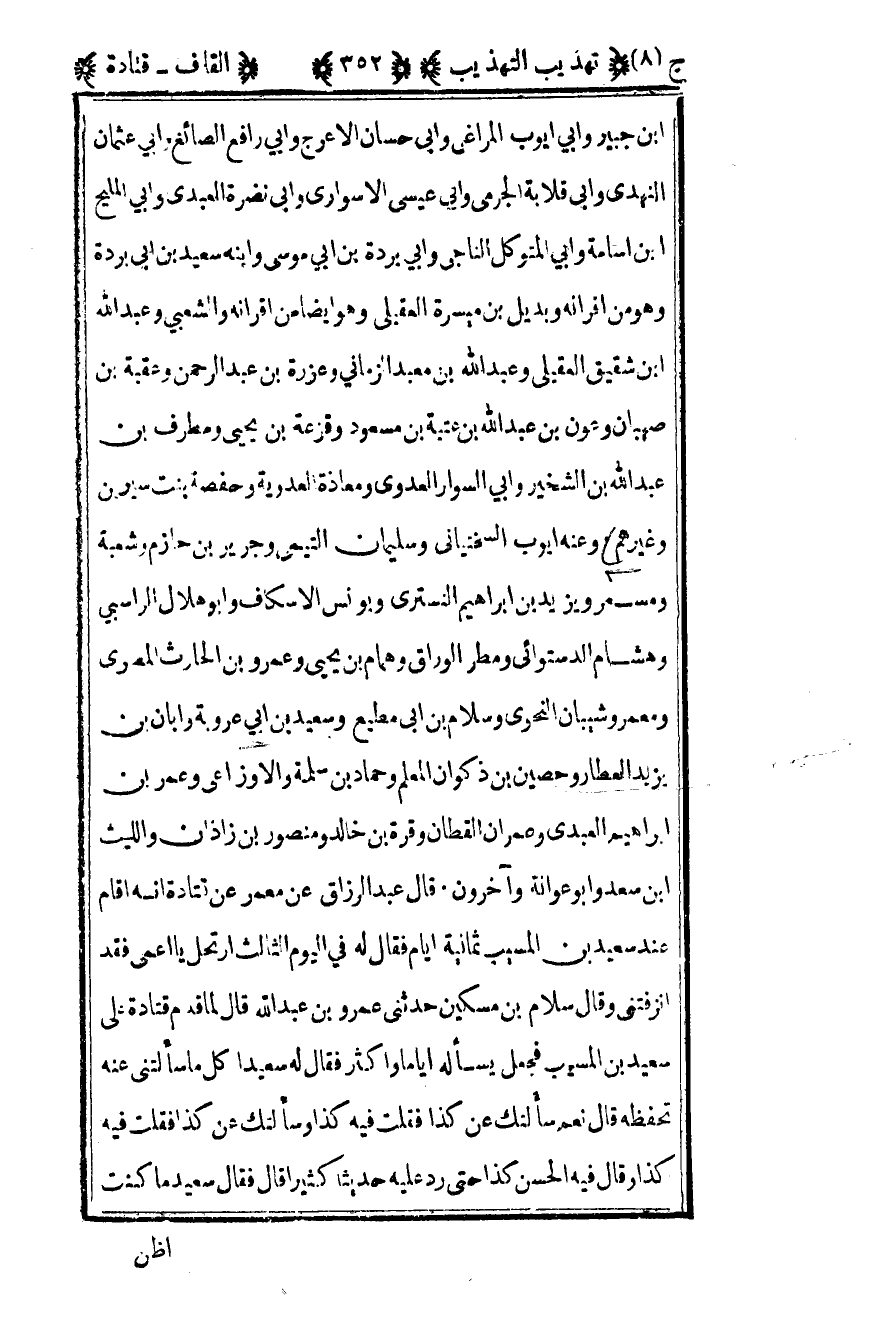 ج (٨) تهذيب التهذيب ٣٥٢ القاف - قتادة
ابن جبير وابي ايوب المراغى وابى حسان الاعرج وابي رافع الصائغ وابي عثمان
النهدى وابى قلابة الجرمى وابي عيسى الاسوارى وابى نضرة العبدى وابي المليح
ابن اسامة وابي المتوكل الناجى وابي بردة بن ابي موسى وابنه سعيد بن ابى بردة
وهو من اقرانه وبديل بن ميسرة العقيلى وهو ايضا من اقرانه والشعبي وعبدالله
ابن شقيق العقيلى وعبدالله بن معبد الزماني وعزرة بن عبدالرحمن وعقبة بن
صهبان وعون بن عبدالله بن عتبة بن مسعود وقزعة بن يحيى ومطرف بن
عبدالله بن الشخير وابي السوار العدوى ومعاذة العدوية وحفصة بنت سيرين
وغيرهم وعنه ايوب السختيانى وسليمان التيمى وجرير بن حازم وشعبة
ومسعر ويزيد بن ابراهيم التسترى ويونس الاسكاف وابوهلال الراسبي
وهشام الدستوائى ومطر الوراق وهمام بن يحيى وعمرو بن الحارث المصرى
ومعمر وشيبان النحوى وسلام بن ابى مطيع وسعيد بن ابي عروبة وابان بن
يزيد العطار وحصين بن ذكوان المعلم وحماد بن سلمة والاوزاعى وعمر بن
ابراهيم العبدى وعمران القطان وقرة بن خالد ومنصور بن زاذان والليث
ابن سعد وابو عوانة وآخرون · قال عبدالرزاق عن معمر عن قتادة انه اقام
عند سعيد بن المسيب ثمانية ايام فقال له في اليوم الثالث ارتحل يا اعمى فقد
انزفتنى وقال سلام بن مسكين حدثنى عمرو بن عبدالله قال لما قدم قتادة على
سعيد بن المسيب فجعل يسأله اياما واكثر فقال له سعيد اكل ما سألتنى عنه
تحفظه قال نعم سألتك عن كذا فقلت فيه كذا وسألتك عن كذا فقلت فيه
كذا وقال فيه الحسن كذا حتى رد عليه حديثا كثيرا قال فقال سعيد ما كنت
اظن